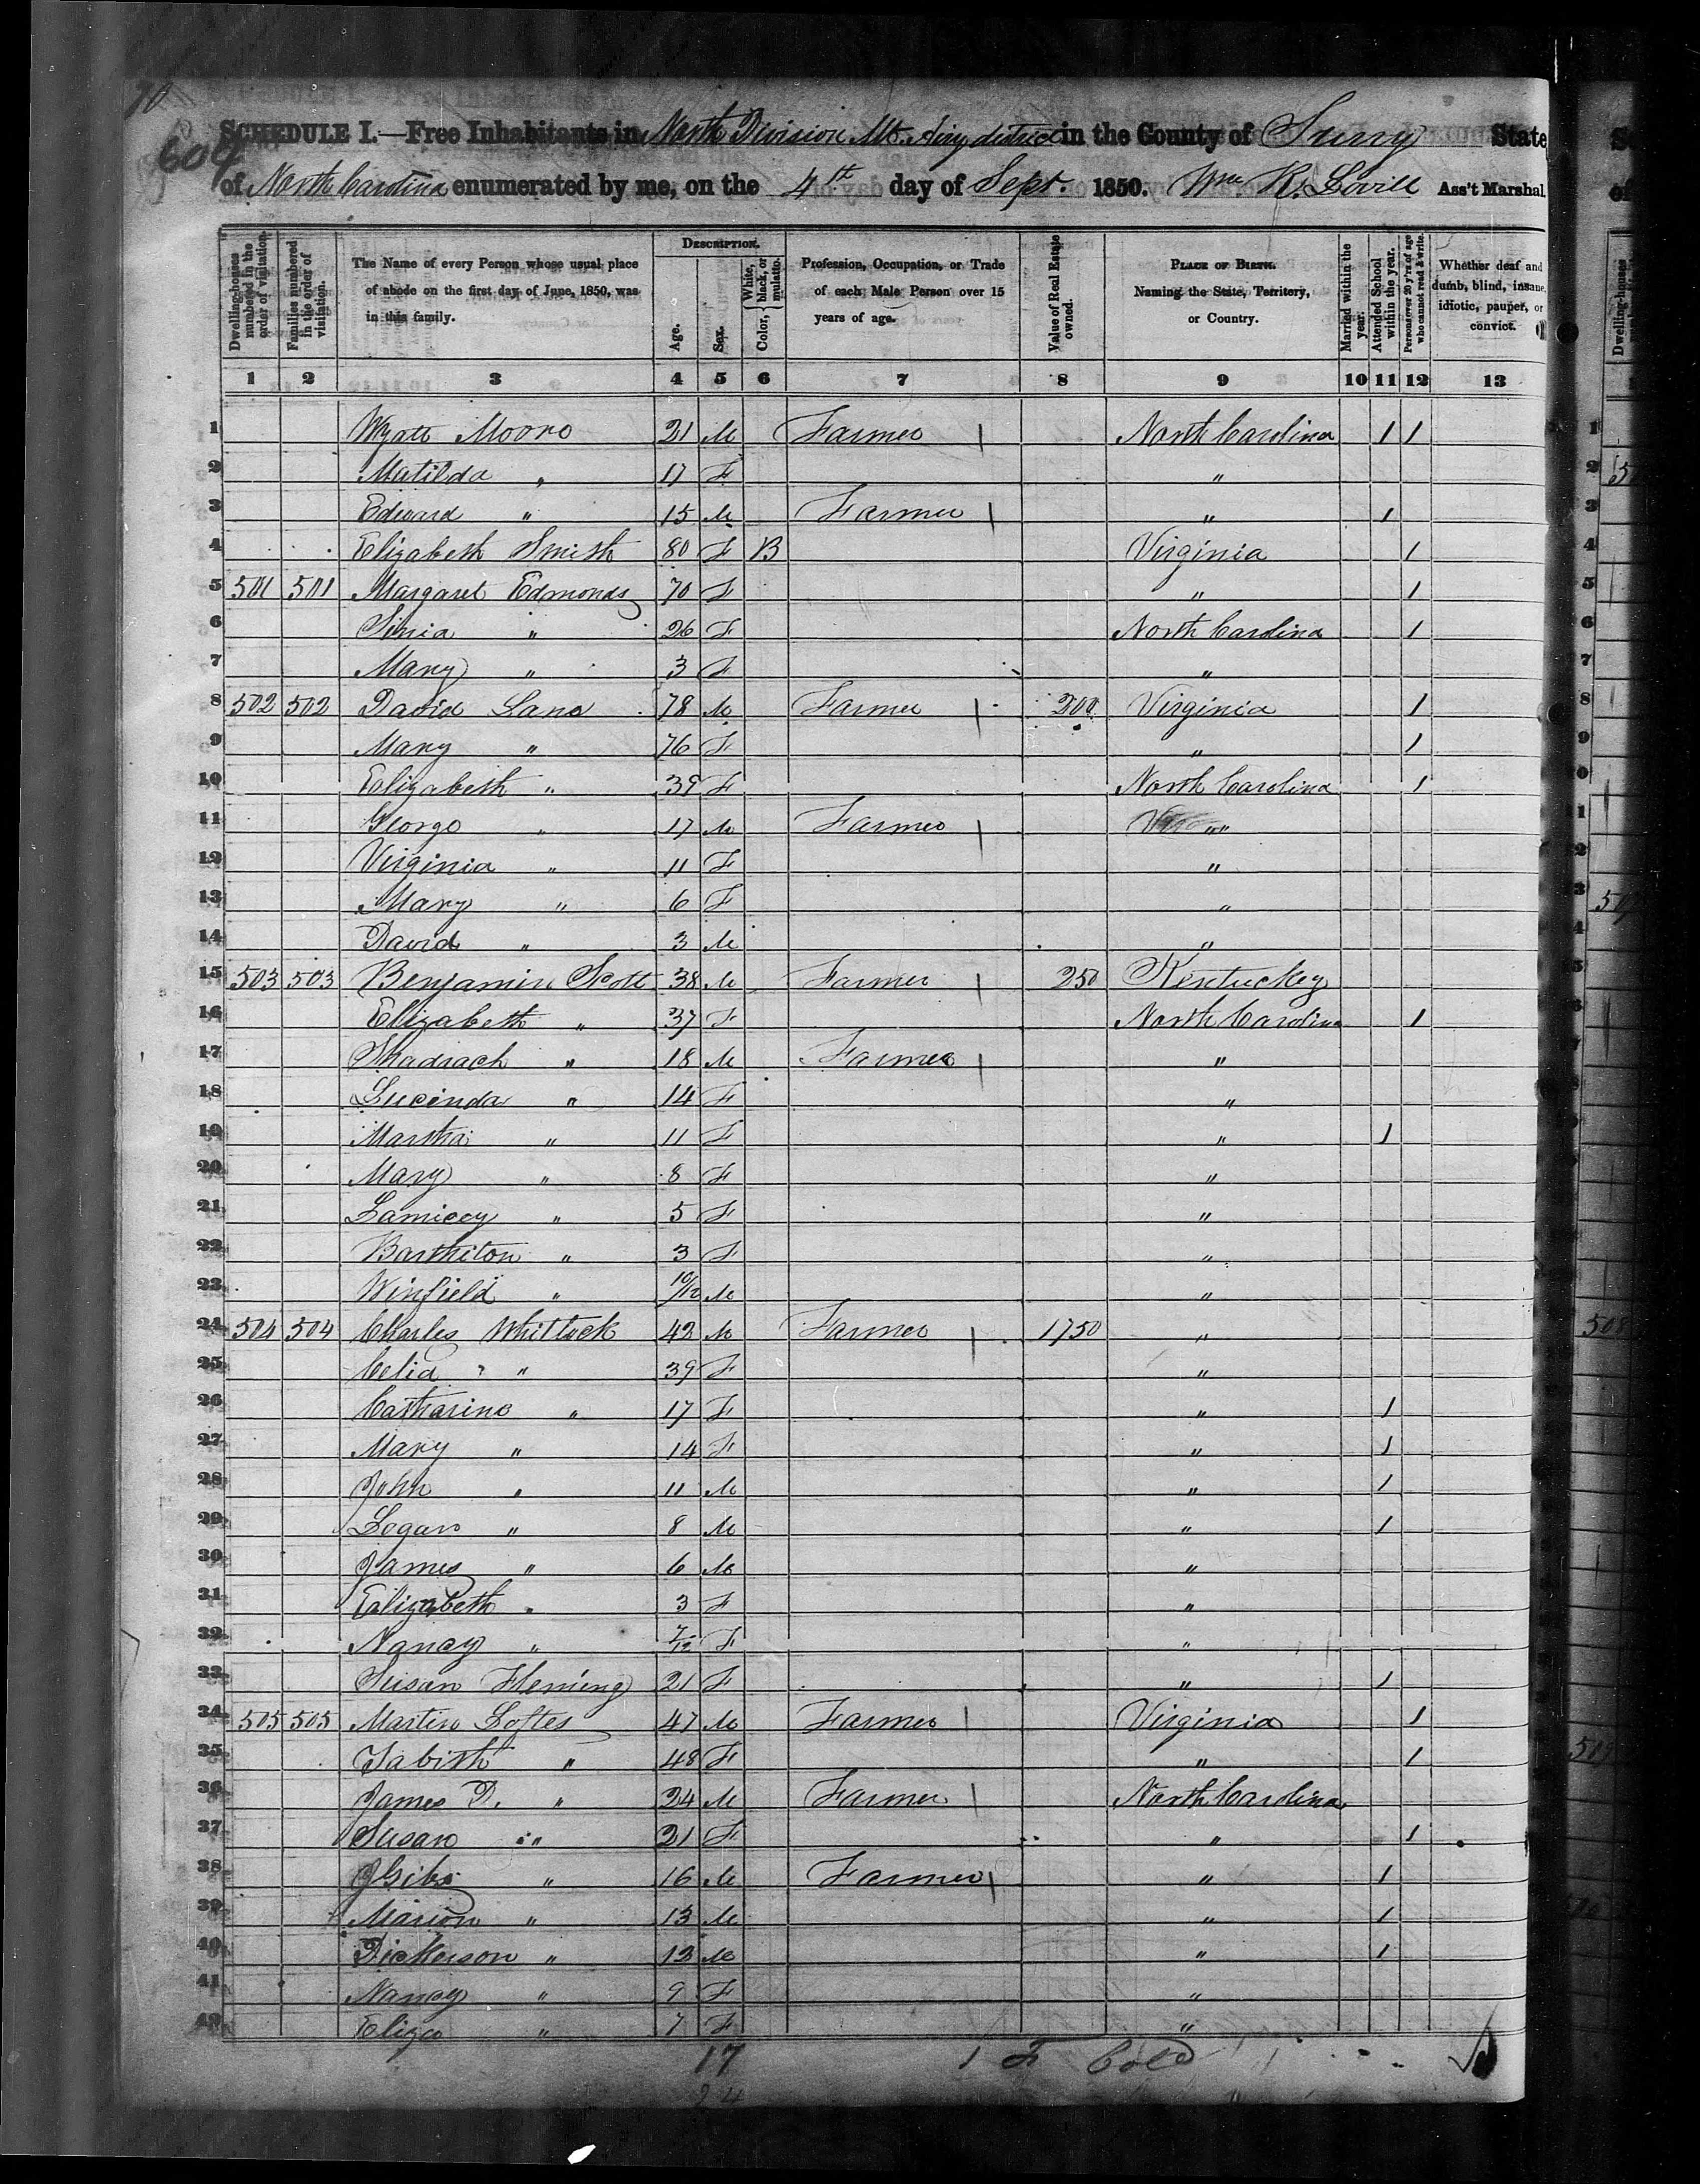 70
604
SCHEDULE I.—Free Inhabitants in North Division Mt. Airy district in the County of Surry State
of North Carolina enumerated by me, on the 4th day of Sept. 1850. Wm K. Lovill Ass't Marshal.
Dwelling-houses numbered in the order of visitation. Families numbered in the order of visitation. The Name of every Person whose usual place of abode on the first day of June, 1850, was in this family. DESCRIPTION. Age. Sex. Color, White, black, or mulatto. Profession, Occupation, or Trade of each Male Person over 15 years of age. Value of Real Estate owned. PLACE OF BIRTH. Naming the State, Territory, or Country. Married within the year. Attended School within the year. Persons over 20 y'rs of age who cannot read & write. Whether deaf and dumb, blind, insane, idiotic, pauper, or convict.
1 2 3 4 5 6 7 8 9 10 11 12 13
1 Wyatt Moore 21 M Farmer North Carolina 1 1
2 Matilda " 17 F "
3 Edward " 15 M Farmer " 1
4 Elizabeth Smith 80 F B Virginia 1
5 501 501 Margaret Edmonds 70 F " 1
6 " 26 F North Carolina 1
7 Mary " 3 F "
8 502 502 David Lane 78 M Farmer 200 Virginia 1
9 Mary " 76 F " 1
10 Elizabeth " 39 F North Carolina 1
11 George " 17 M Farmer "
12 Virginia " 11 F "
13 Mary " 6 F "
14 David " 3 M "
15 503 503 Benjamin Scott 38 M Farmer 250 Kentucky
16 Elizabeth " 37 F North Carolina 1
17 Shadrach " 18 M Farmer "
18 Lucinda " 14 F "
19 Martha " 11 F " 1
20 Mary " 8 F "
21 " 5 F "
22 " 3 F "
23 Winfield " 10/12 M "
24 504 504 Charles Whitlock 42 M Farmer 1750 "
25 Celia " 39 F "
26 Catharine " 17 F " 1
27 Mary " 14 F " 1
28 John " 11 M " 1
29 Logan " 8 M " 1
30 James " 6 M "
31 Elizabeth " 3 F "
32 Nancy " 7/12 F "
33 Susan Fleming 21 F " 1
34 505 505 Martin Loftes 47 M Farmer Virginia 1
35 Tabith " 48 F " 1
36 James D. " 24 M Farmer North Carolina
37 Susan " 21 F " 1
38 " 16 M Farmer " 1
39 Marion " 13 M " 1
40 Dickerson " 13 M " 1
41 Nancy " 9 F "
42 Eliza " 7 F "
17 1 F Cold
24